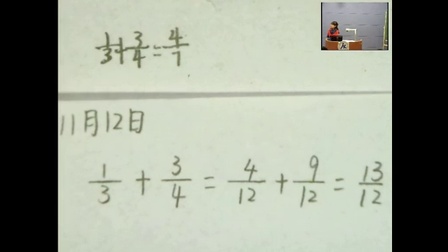 1/3+3/4=4/7
11月12日
1/3 + 3/4 = 4/12 + 9/12 = 13/12